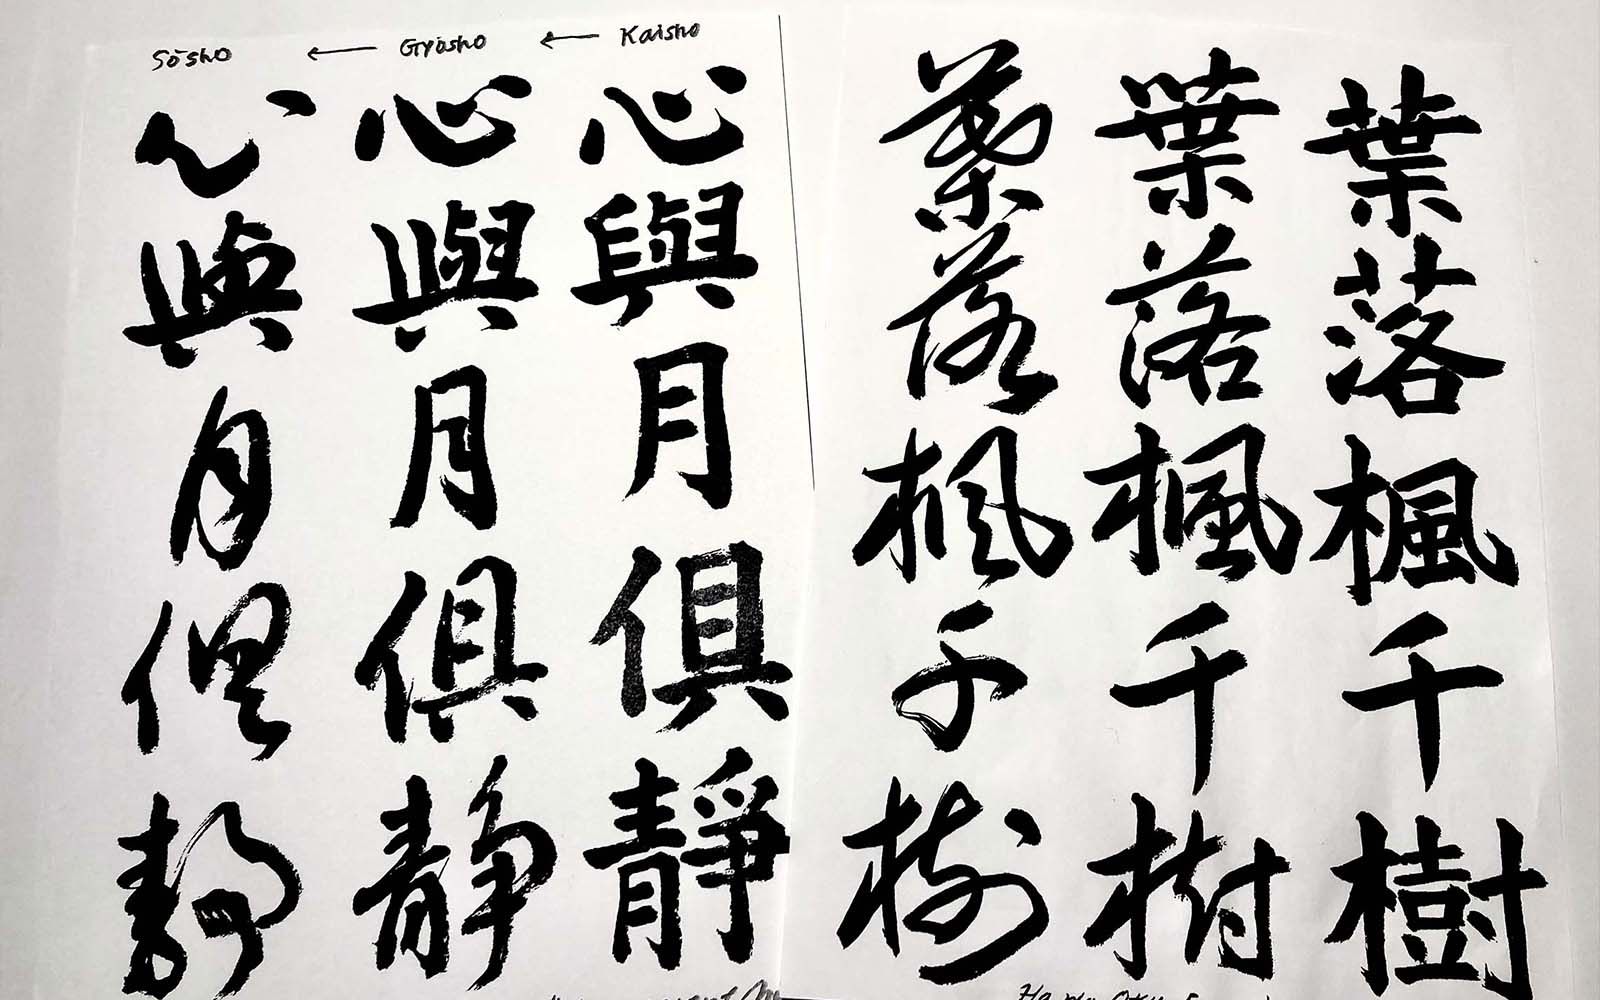 Sōsho ← Gyōsho ← Kaisho
葉落楓千樹
葉落楓千樹
葉落楓千樹
心與月俱靜
心與月俱静
心與月俱静